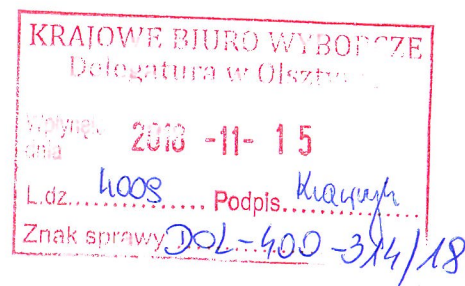 KRAJOWE BIURO WYBORCZE
Delegatura w Olsztynie
Wpłynęło
dnia 2018 -11- 15
L.dz. 4009 Podpis
Znak sprawy DOL-400-314/18